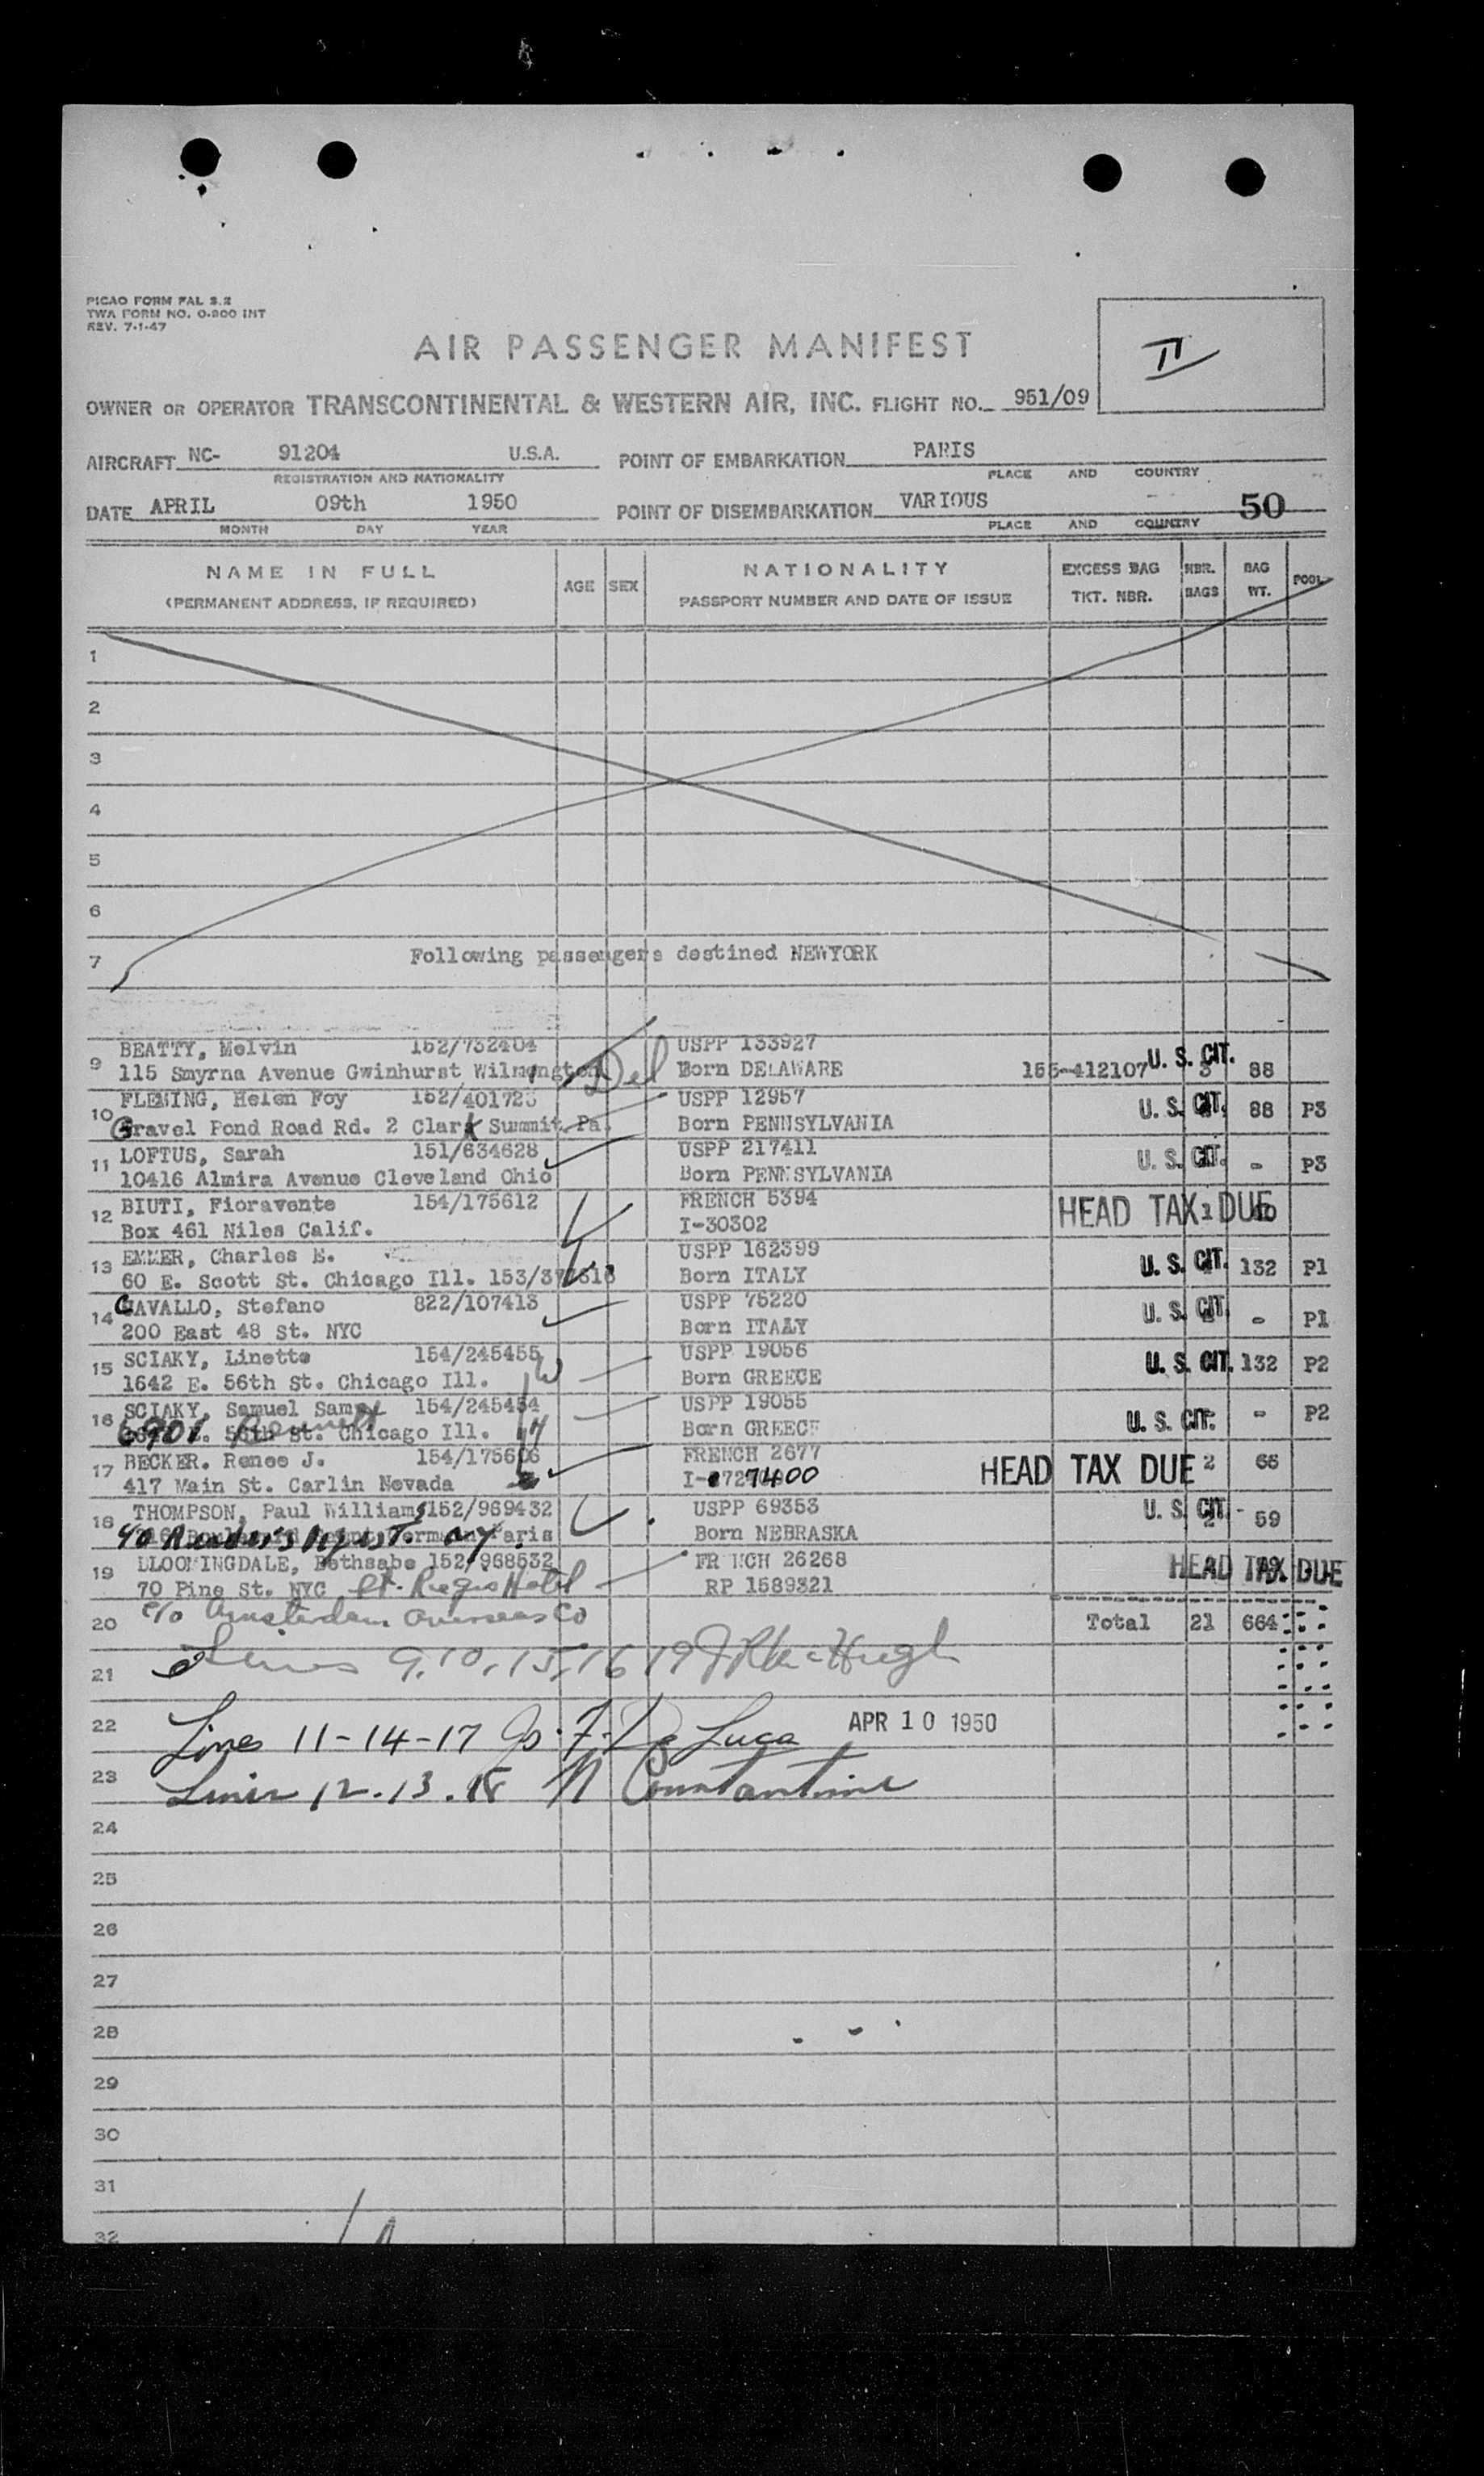 PICAO FORM FAL 3.2
TWA FORM NO. O-800 INT
REV. 7-1-47
II
AIR PASSENGER MANIFEST
OWNER OR OPERATOR TRANSCONTINENTAL & WESTERN AIR, INC. FLIGHT NO. 951/09
AIRCRAFT NC- 91204 U.S.A. POINT OF EMBARKATION PARIS
REGISTRATION AND NATIONALITY PLACE AND COUNTRY
DATE APRIL 09th 1950 POINT OF DISEMBARKATION VARIOUS 50
MONTH DAY YEAR PLACE AND COUNTRY
NAME IN FULL AGE SEX NATIONALITY EXCESS BAG NBR. BAG POOL
(PERMANENT ADDRESS, IF REQUIRED) PASSPORT NUMBER AND DATE OF ISSUE TKT. NBR. BAGS WT.
1
2
3
4
5
6
7 Following passengers destined NEWYORK
9 BEATTY, Melvin 152/732404 USPP 133927
115 Smyrna Avenue Gwinhurst Wilmington Del Born DELAWARE 155-412107 U. S. CIT. 88
10 FLEMING, Helen Foy 152/401723 USPP 12957
Gravel Pond Road Rd. 2 Clark Summit Pa. Born PENNSYLVANIA U. S. CIT. 88 P3
11 LOFTUS, Sarah 151/634628 USPP 217411
10416 Almira Avenue Cleveland Ohio Born PENNSYLVANIA U. S. CIT. - P3
12 BIUTI, Fioravente 154/175612 FRENCH 5394
Box 461 Niles Calif. I-30302 HEAD TAX DUE
13 EMMER, Charles E. USPP 162399
60 E. Scott St. Chicago Ill. Born ITALY U. S. CIT. 132 P1
14 CAVALLO, Stefano 822/107413 USPP 75220
200 East 48 St. NYC Born ITALY U. S. CIT. - P1
15 SCIAKY, Linette 154/245455 USPP 19056
1642 E. 56th St. Chicago Ill. Born GREECE U. S. CIT. 132 P2
16 SCIAKY, Samuel Sam 154/245454 USPP 19055
6901 Bennett 56th St. Chicago Ill. Born GREECE U. S. CIT. - P2
17 BECKER. Renee J. 154/175606 FRENCH 2677
417 Main St. Carlin Nevada 7400 HEAD TAX DUE 2 66
18 THOMPSON, Paul Williams 152/969432 USPP 69353
Paris Born NEBRASKA U. S. CIT. - 59
40 Readers Digest NY.
19 BLOOMINGDALE, Bethsabe 152/968532 FRENCH 26268 HEAD TAX DUE
70 Pine St. NYC St. Regis Hotel RP 1589321
20 c/o Amsterdam Overseas Co Total 21 664
21 Lines 9, 10, 15, 16 19 McHugh
22 Lines 11-14-17 Jo. F. De Luca APR 10 1950
23 Lines 12.13.18 N Constantine
24
25
26
27
28
29
30
31
32